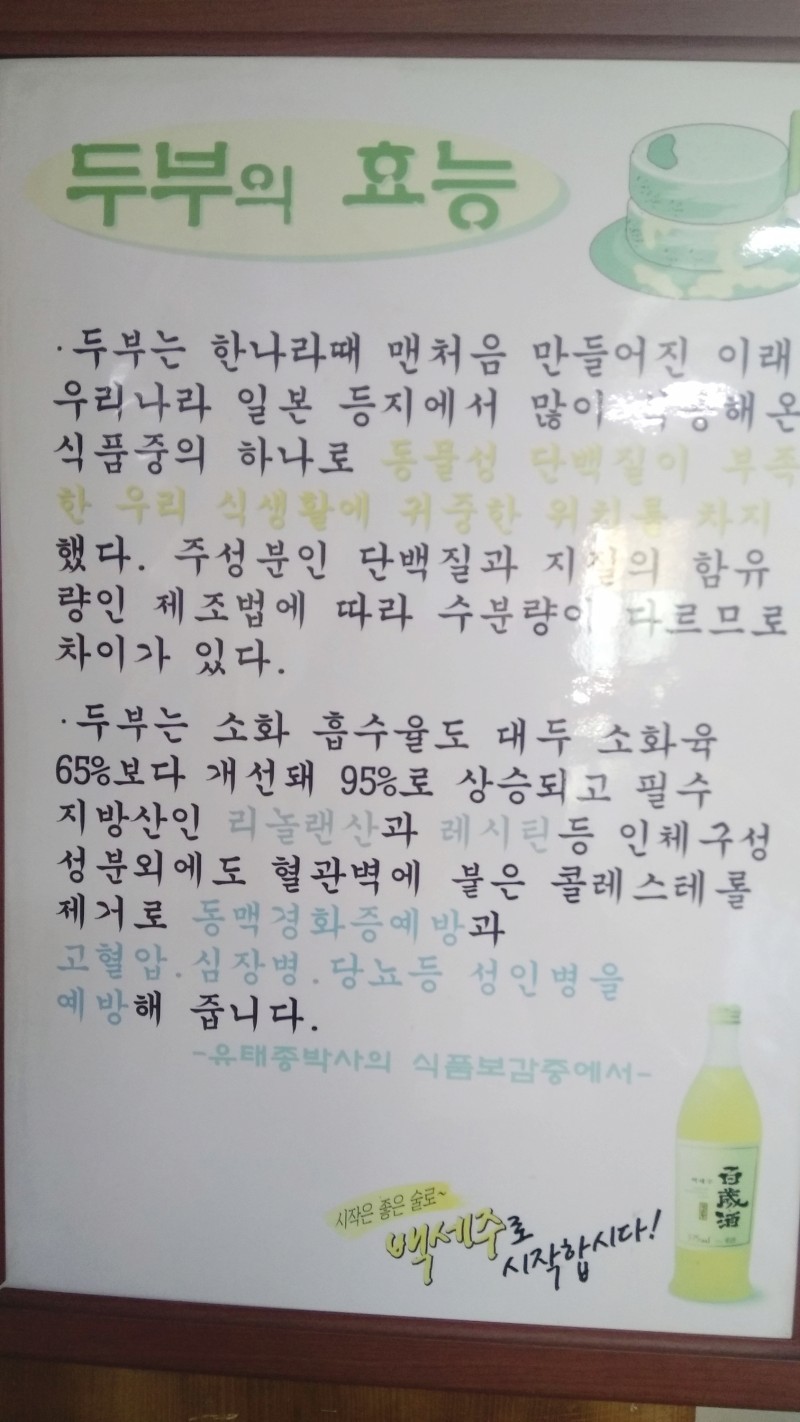 두부의 효능
·두부는 한나라때 맨처음 만들어진 이래
우리나라 일본 등지에서 많이 해온
식품중의 하나로 동물성 단백질이 부족
한 우리 식생활에 귀중한 위치를 차지
했다. 주성분인 단백질과 지질의 함유
량인 제조법에 따라 수분량이 다르므로
차이가 있다.
·두부는 소화 흡수율도 대두 소화육
65%보다 개선돼 95%로 상승되고 필수
지방산인 리놀랜산과 레시틴등 인체구성
성분외에도 혈관벽에 붙은 콜레스테롤
제거로 동맥경화증예방과
고혈압.심장병.당뇨등 성인병을
예방해 줍니다.
-유태종박사의 식품보감중에서-
시작은 좋은 술로~
백세주로
시작합시다!
百歲酒